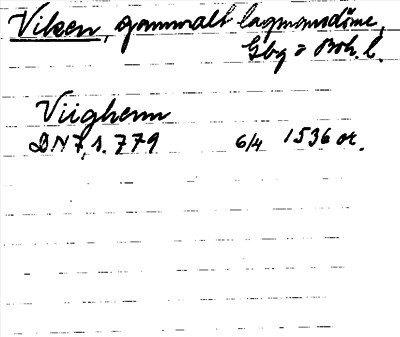 Viken, gammalt lagmansdöme,
Gbg o Boh. l.
Viighenn
DN 7, s. 779 6/4 1536 or.